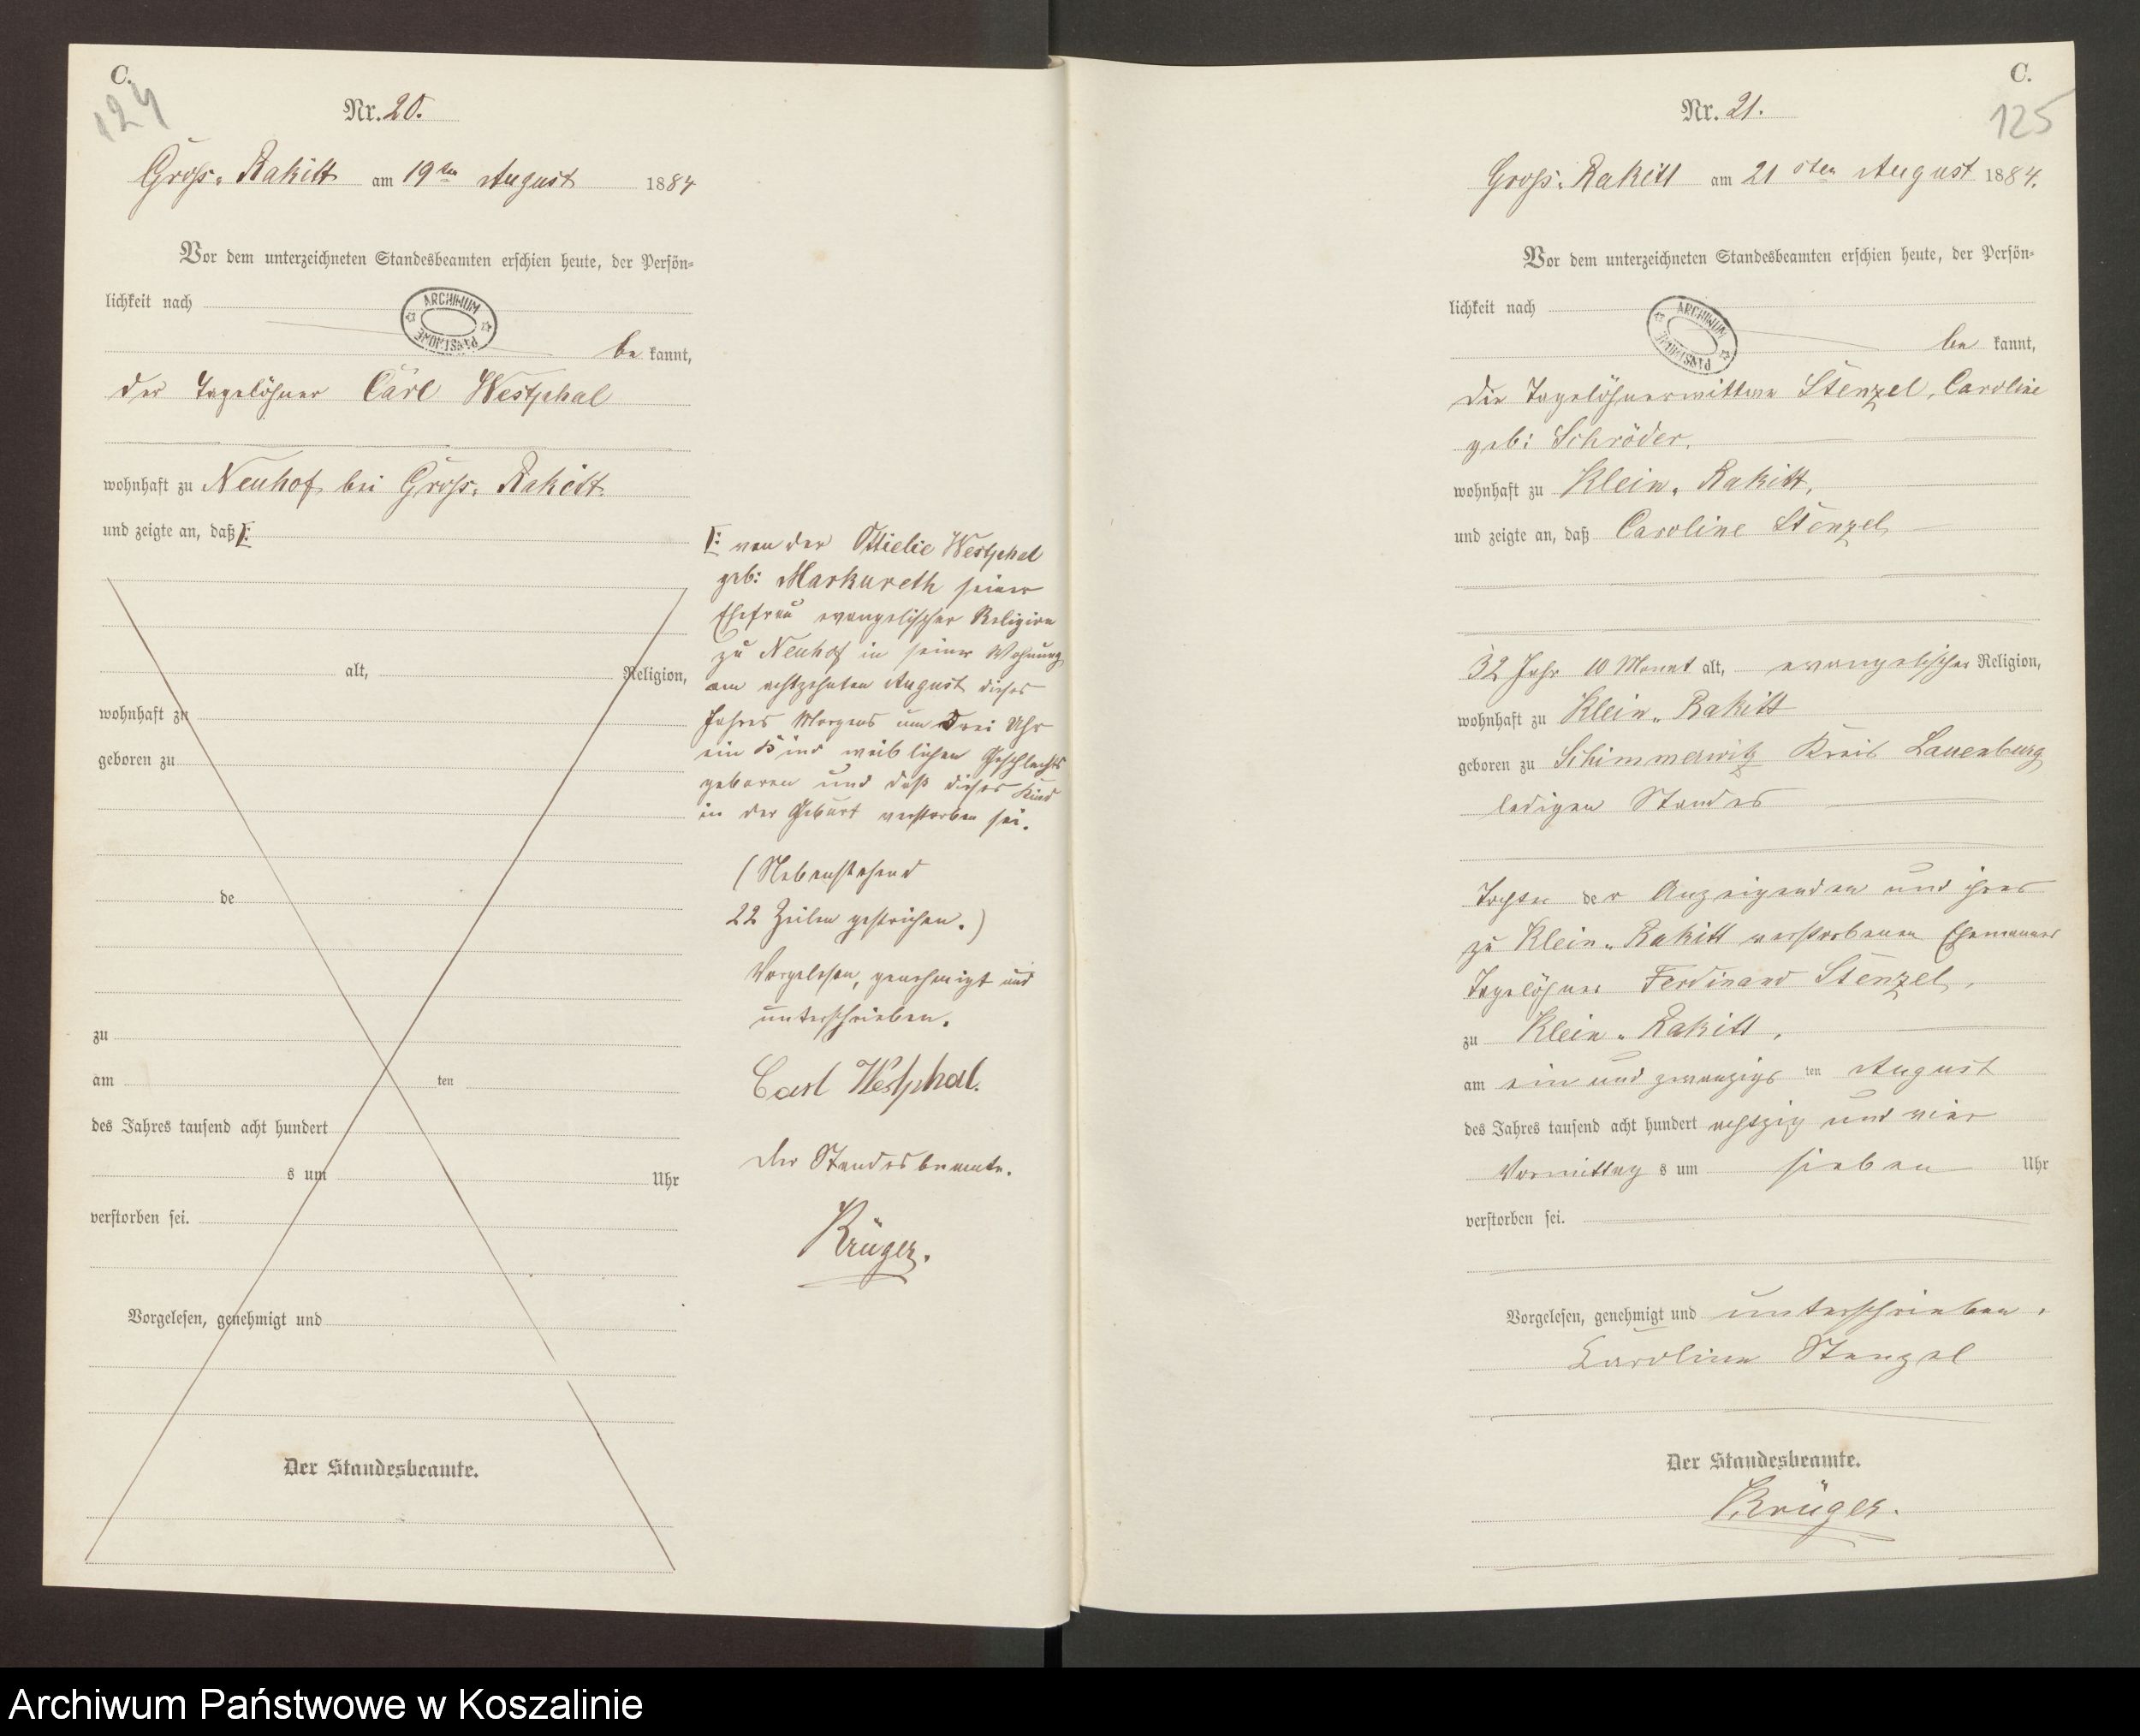 C.
124
Nr. 20.
Gross. Rakitt am 19ten August 1884
Vor dem unterzeichneten Standesbeamten erschien heute, der Persön-
lichkeit nach
ARCHIWUM PAŃSTWOWE
be kannt,
der Tagelöhner Carl Westphal
wohnhaft zu Neuhof bei Gross. Rakitt
und zeigte an, daß
alt, Religion,
wohnhaft zu
geboren zu
de
zu
am ten
des Jahres tausend acht hundert
s um Uhr
verstorben sei.
Vorgelesen, genehmigt und
Der Standesbeamte.
von der Ottielie Westphal
geb: Markureth seiner
Ehefrau evangelischer Religion
zu Neuhof in seiner Wohnung
am achtzehnten August dieses
Jahres Morgens um Drei Uhr
ein Kind weiblichen Geschlechts
geboren und daß dieses Kind
in der Geburt verstorben sei.
(Nebenstehend
22 Zeilen gestrichen.)
Vorgelesen, genehmigt und
unterschrieben.
Carl Westphal.
Der Standesbeamte.
Krüger.
C.
125
Nr. 21.
Gross. Rakitt am 21sten August 1884.
Vor dem unterzeichneten Standesbeamten erschien heute, der Persön-
lichkeit nach
ARCHIWUM PAŃSTWOWE
be kannt,
die Tagelöhnerwittwe Stenzel, Caroline
geb: Schröder,
wohnhaft zu Klein. Rakitt,
und zeigte an, daß Caroline Stenzel
32 Jahr 10 Monat alt, evangelischer Religion,
wohnhaft zu Klein. Rakitt
geboren zu Schimmerwitz Kreis Lauenburg
ledigen Standes
Tochter der Anzeigenden und ihres
zu Klein. Rakitt verstorbenen Ehemannes
Tagelöhner Ferdinand Stenzel,
zu Klein. Rakitt,
am ein und zwanzigs ten August
des Jahres tausend acht hundert achtzig und vier
Vormittag s um sieben Uhr
verstorben sei.
Vorgelesen, genehmigt und unterschrieben.
Caroline Stenzel
Der Standesbeamte.
Krüger.
Archiwum Państwowe w Koszalinie